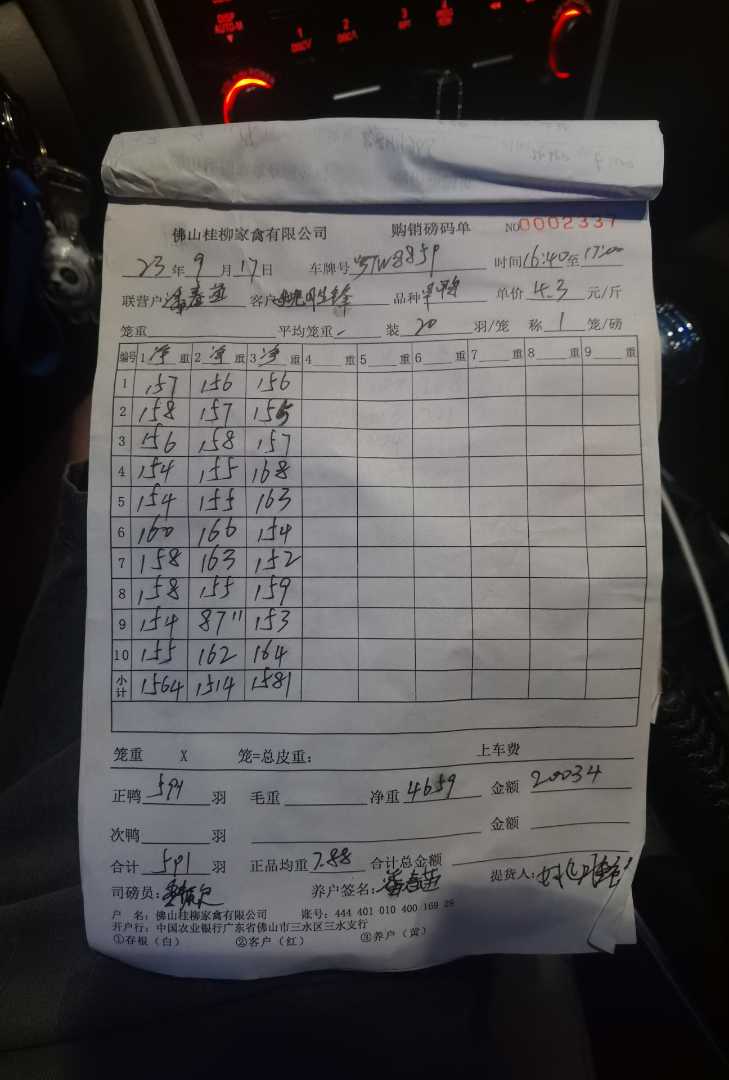 佛山桂柳家禽有限公司 购销磅码单 NO0002337
23年9月17日 车牌号 时间16:40至17:00
联营户潘春苗 客户 品种 单价4.3元/斤
笼重 平均笼重- 装20羽/笼 称1笼/磅
编号 1净重 2净重 3净重 4重 5重 6重 7重 8重 9重
1 157 156 156
2 158 157 155
3 156 158 157
4 154 155 168
5 154 155 163
6 160 166 154
7 158 163 152
8 158 155 159
9 154 87" 153
10 155 162 164
小计 1564 1514 1581
笼重 X 笼=总皮重: 上车费
正鸭591羽 毛重 净重4659 金额20034
次鸭 羽 金额
合计591羽 正品均重7.88 合计总金额
司磅员: 养户签名:潘春苗 提货人:
户 名: 佛山桂柳家禽有限公司 账号: 444 401 010 400 169 28
开户行: 中国农业银行广东省佛山市三水区三水支行
①存根(白) ②客户(红) ③养户(黄)